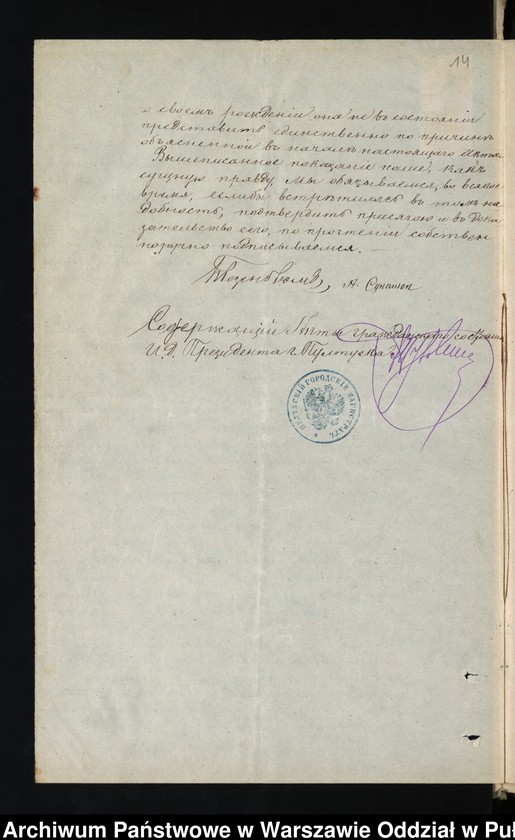 14
о своемъ рожденіи она не въ состояніи
представить единственно по причинѣ
объясненной въ началѣ настоящаго Акта.
Вышеписанное показаніе наше, какъ
сущную правду, мы обязываемся, во всякое
время, еслибы встрѣтилась въ томъ на
добность, подтвердить присягою и въ дока
зательство сего, по прочтеніи собствен
норучно подписываемся. —
Розенблюмъ, А. Сухашек
Содержащій Акты гражданскаго состоянія
И. Д. Президента г. Пултуска
ПУЛТУСКІЙ ГОРОДСКІЙ МАГИСТРАТЪ
Archiwum Państwowe w Warszawie Oddział w Pu